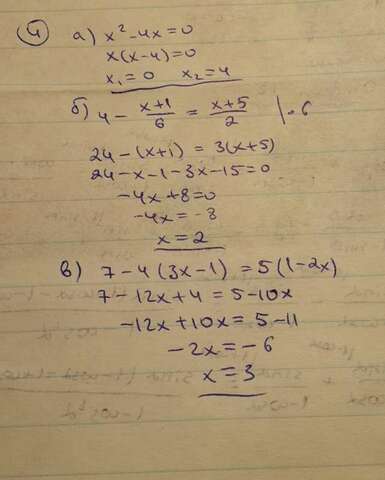 4 а) x² - 4x = 0
x(x-4) = 0
x₁ = 0 x₂ = 4
б) 4 - (x+1)/6 = (x+5)/2 | · 6
24 - (x+1) = 3(x+5)
24 - x - 1 - 3x - 15 = 0
-4x + 8 = 0
-4x = -8
x = 2
в) 7 - 4(3x-1) = 5(1-2x)
7 - 12x + 4 = 5 - 10x
-12x + 10x = 5 - 11
-2x = -6
x = 3